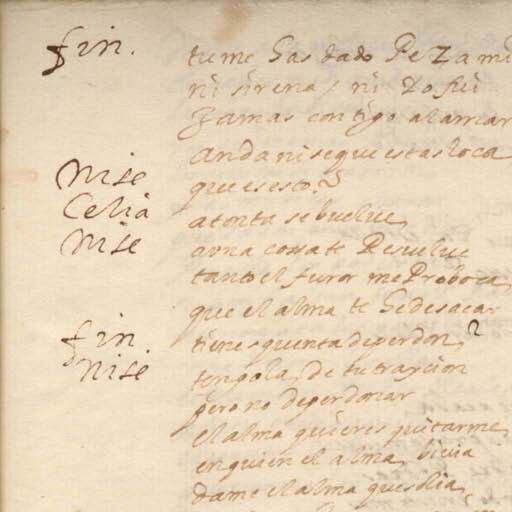 fin. tu me has dado Peza mi
ni sirena, ni Yo fui
Jamas contigo a la mar
anda nise que estas loca
Nise que es esto?
Celia atonta se buelue,
Nise a vna cossa te Resuelue
tanto el furor me Proboca,
que el alma te he de sacar
fin tienes quenta de perdon,
nise tengola, de tu traycion
pero no de perdonar
el alma quieres quitarme
en quien el alma, biuia
dame el alma que solia,